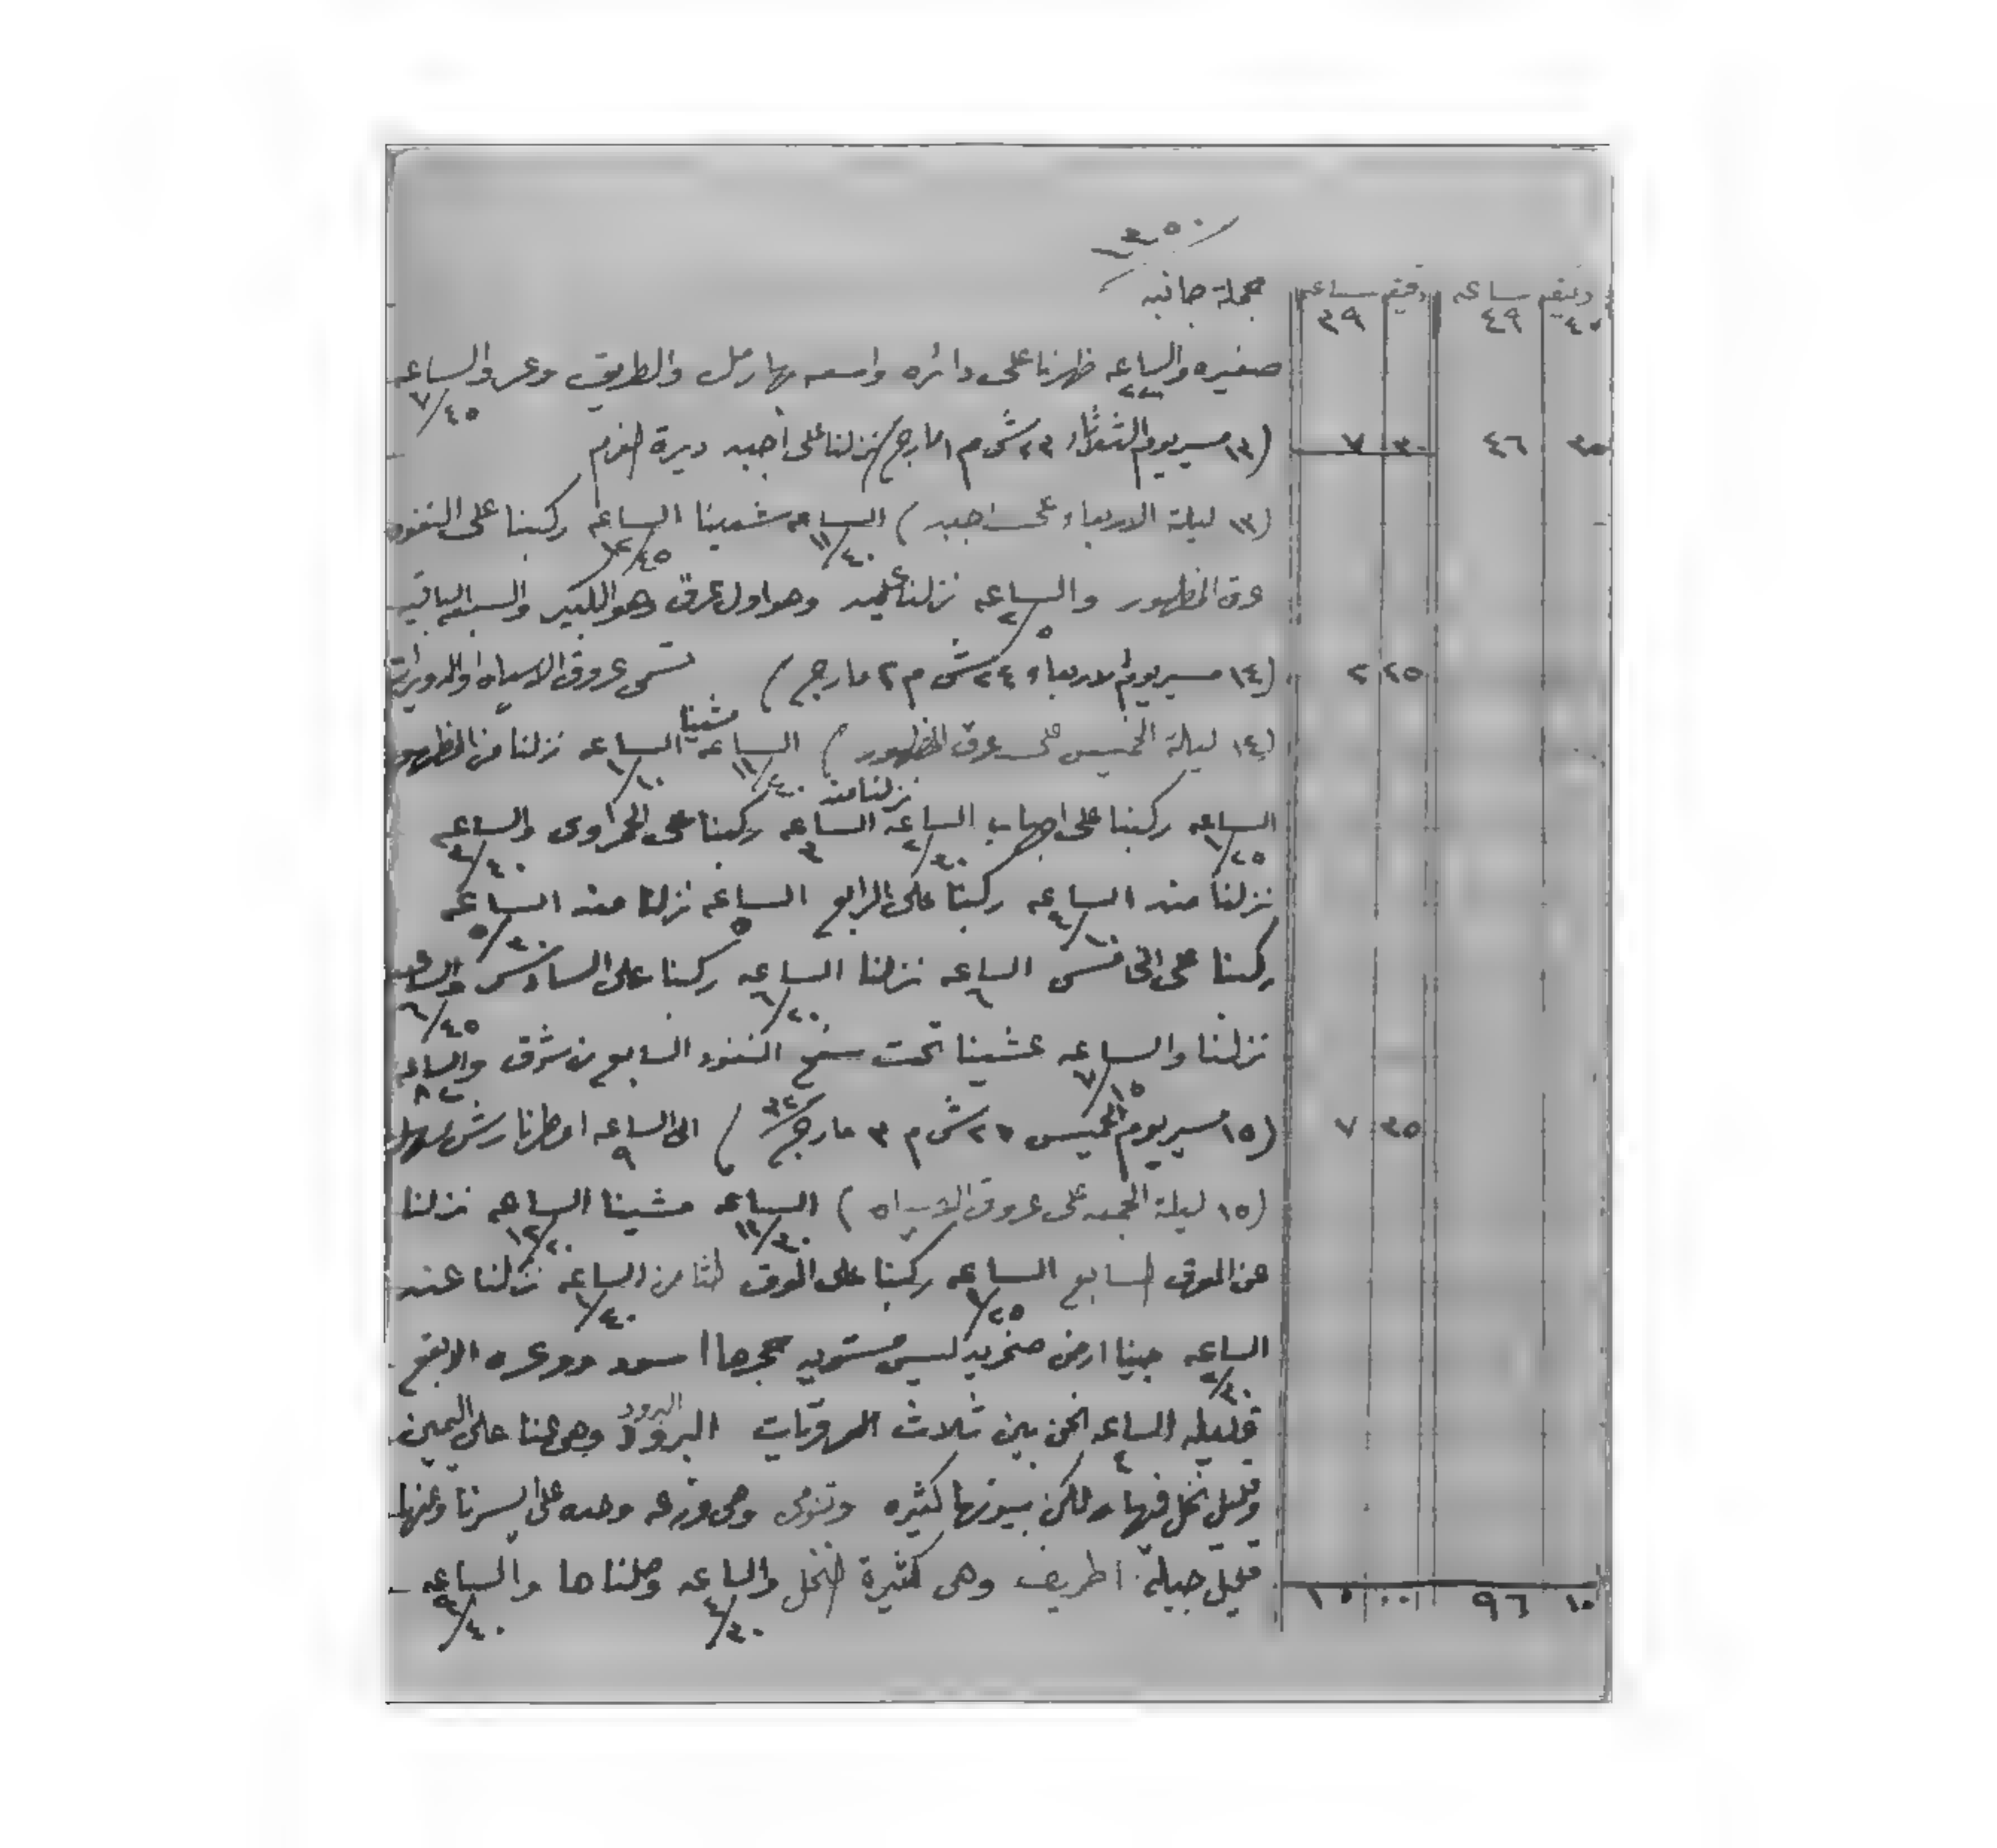 ١٣٥٠
دقيقه ساعه دقيقه ساعه جملة جانبه
٤٠ ٤٩ ٣٩
صغيره والساعه ظهرنا على دائره واسعه بها رمل والطريق وعر والساعه ٧/٤٥
٣٥ ٤٦ ٣٠ ٧ (١٣ مسير يوم الثلاثاء ٢٣ ش م ١ مارج / نزلنا على اجبه ديرة
(١٣ ليلة الاربعاء على اجبه) الساعه ١١/٤٠ شينا الساعه ١٢/٤٥ ركبنا على النفود
عرق المظهور والساعه ٢/٥ نزلنا عليه وهو اول عرق وهو الكبير والسبعه الباقيه
٢٥ ٢ (١٤ مسير يوم الاربعاء ٢٤ ش م ٢ مارج) تسمى عروق الاسياه
(١٤ ليلة الخميس على عرق المظهور) الساعه ١١/٤٠ مشينا الساعه ١/١٠ نزلنا من المظهور
الساعه ١/٢٥ ركبنا على الساعه ٢/٣٠ نزلنا منه الساعه ٣ ركبنا على الحمراوى والساعه ٣/٤٠
نزلنا منه الساعه ٤/١٠ ركبنا على الرابع الساعه ٥ نزلنا منه الساعه ٥/٣٠
ركبنا على الخامس الساعه ٦ نزلنا الساعه ٦/٢٠ ركبنا على السادس والساعه ٦/٤٥
نزلنا والساعه ٧/١٥ عشينا تحت سفح النفود السابع من شرق والساعه
٣٥ ٧ (١٥ مسير يوم الخميس ٢٥ ش م ٣ مارج ٣٢) الى الساعه ٩ امطرنا رش
(١٥ ليلة الجمعه على عروق الاسياه) الساعه ١١/٣٠ مشينا الساعه ١٢/٢٠ نزلنا
عن العرق السابع الساعه ١/٢٥ ركبنا على العرق الثامن الساعه ١/٤٠ نزلنا عنه
الساعه ٢/٣٠ جينا ارض صخريه ليس مستويه حجرها اسود ووعره الابقع
قليله الساعه ٤ نحن بين ثلاث القريات البرود البرود وهي عنا على اليمين
وقليل نخل فيها ولكن بيوتها كثيره وهي مزرعه وحده على يسرنا وعنها
قليل جبلة اطريف وهى كثيرة النخل والساعه ٤/٣٠ وصلناها والساعه ٩/٤٠
١٥ ٩٦ ٠٠ ١٠